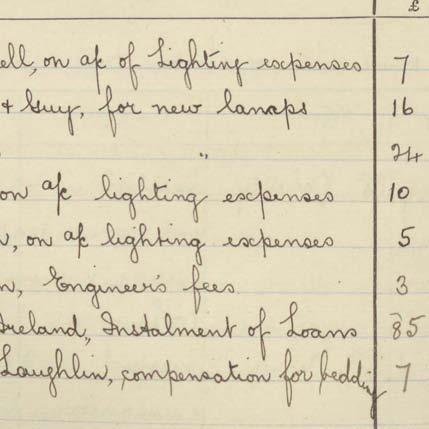 £
ell, on a/c of Lighting expenses 7
& Guy, for new lamps 16
" 24
on a/c lighting expenses 10
, on a/c lighting expenses 5
n, Engineer's fees 3
Ireland, Instalment of Loans 85
Laughlin, compensation for bedding 7